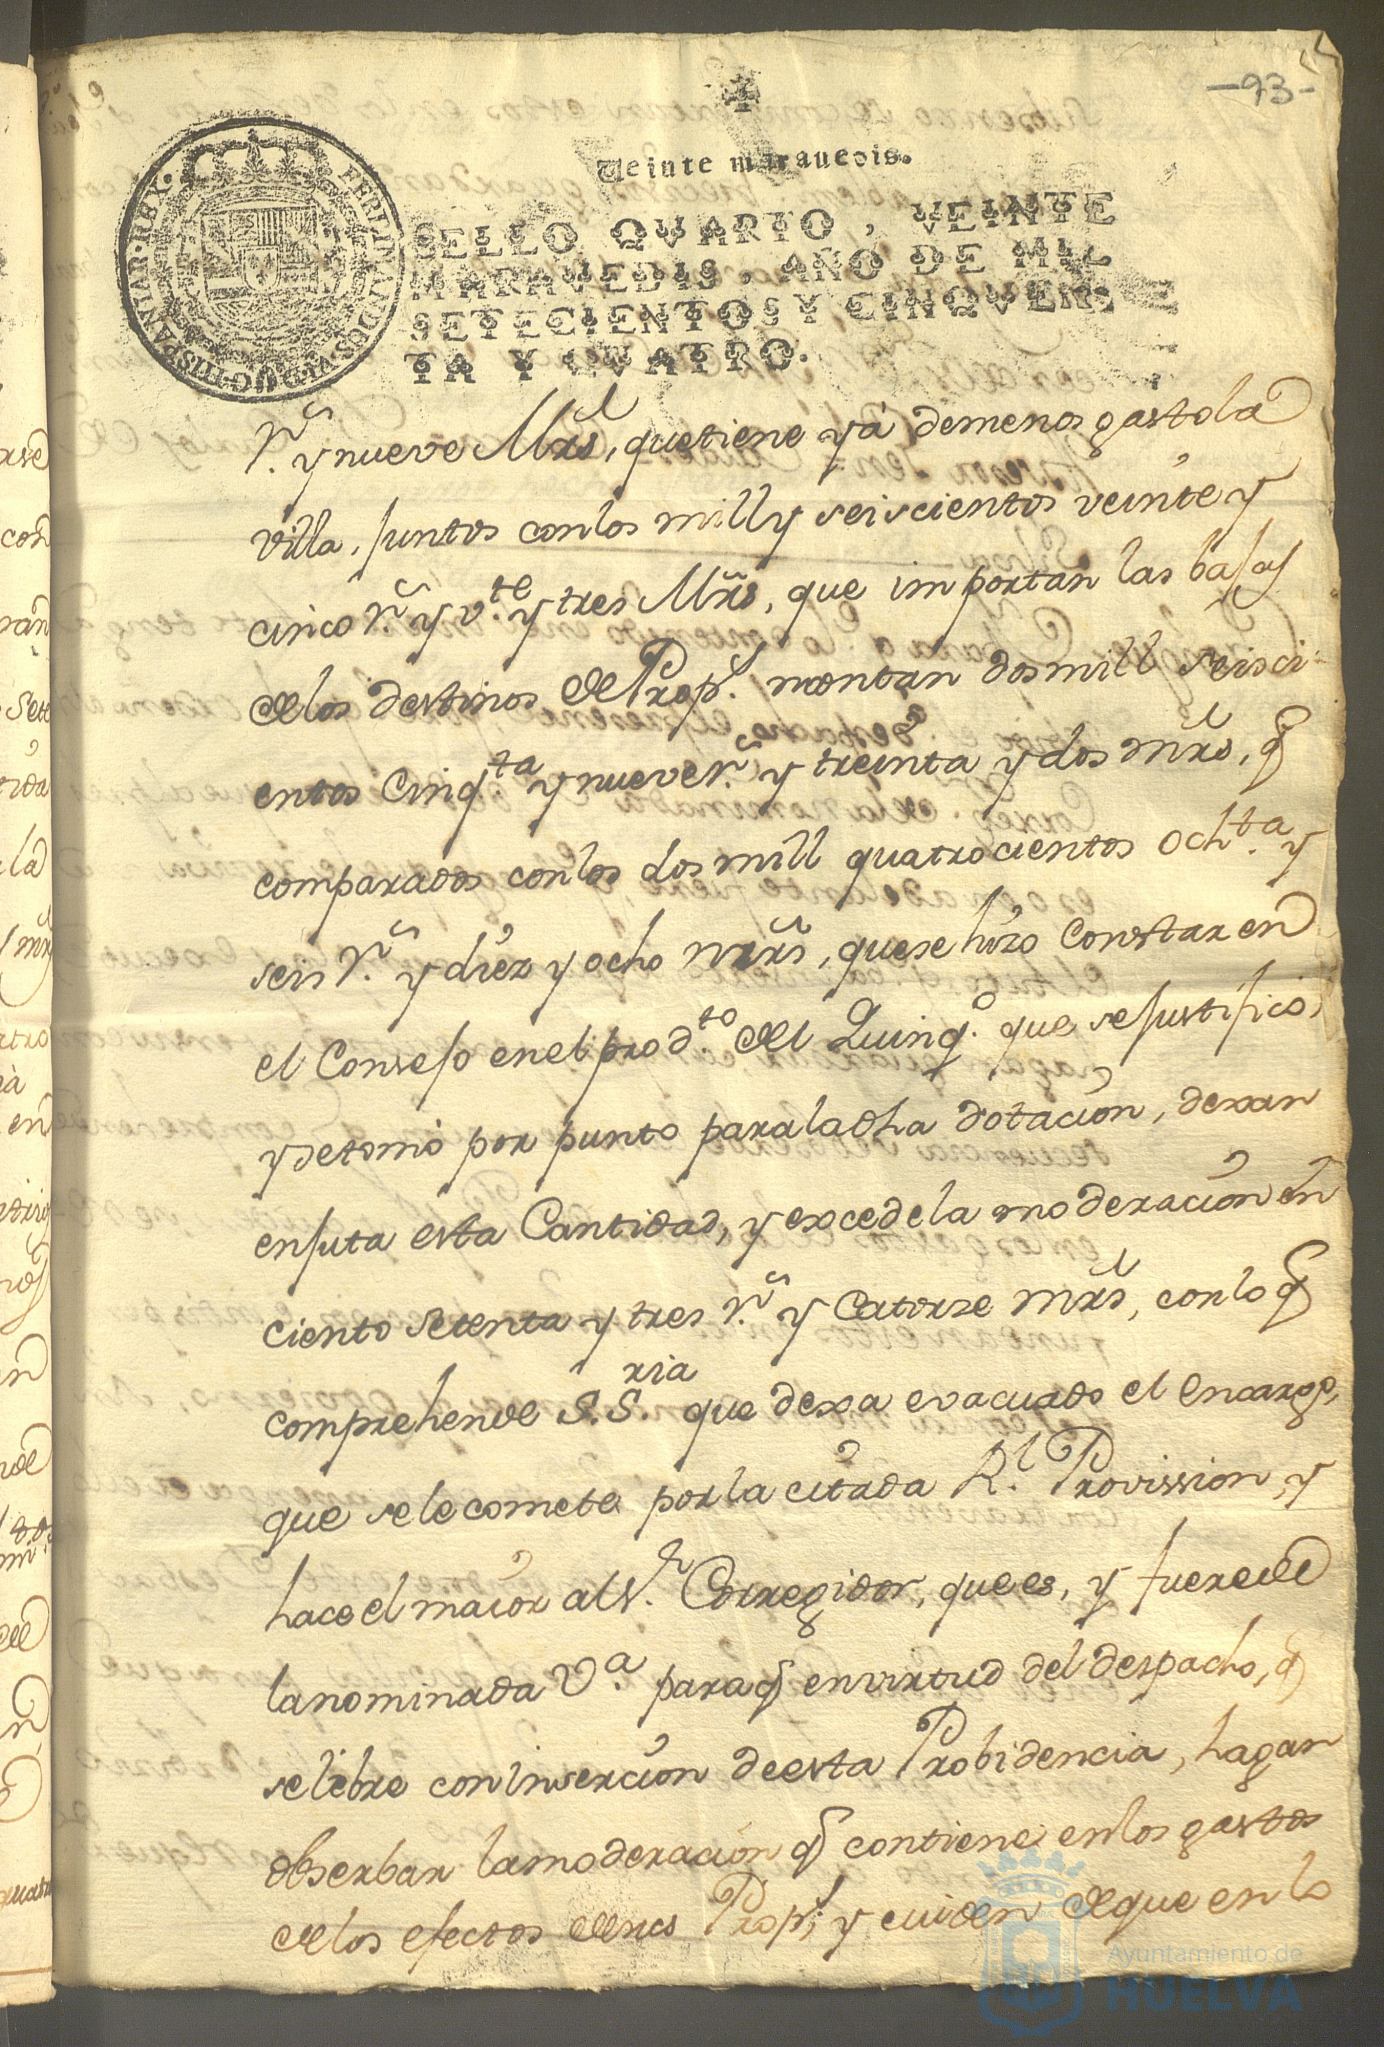 -93-
Veinte marauedis.
FERDINANDUS·VI·D·G·HISPANIAR·REX·
SELLO QVARTO, VEINTE
MARAVEDIS, AÑO DE MIL
SETECIENTOS Y CINQVEN
TA Y QVATRO.
r.s y nueve Mrs, que tiene yá de menos gasto la
villa, juntos con los mill y seiscientos veinte y
cinco r.s y v.te y tres Mrs, que importan las bajas
de los destinos de Prop.s montan dos mill seisci-
entos Cinq.ta y nueve r.s y treinta y dos mrs, q
comparados con los dos mill quatrocientos Och.ta y
seis r.s y diez y ocho mrs, que se hizo Constar en
el Consejo en el prod.to del Quinq.o que se justificó,
y se tomó por punto para la dha dotación, dexan
enjuta esta Cantidad, y excede la moderación en
ciento setenta y tres r.s y Catorze mrs, con lo q
comprehende S.S.ria que dexa evacuado el encargo,
que se le comete por la citada R.l Provission, y
hace el maior al S.r Corregidor, que es, y fuere de
la nominada V.a para q en virtud del despacho, q
se libre con inserción de esta Probidencia, hagan
obserbar la moderación q contiene en los gastos
de los efectos de sus Prop.s y cuiden de que en lo
Ayuntamiento de
HUELVA